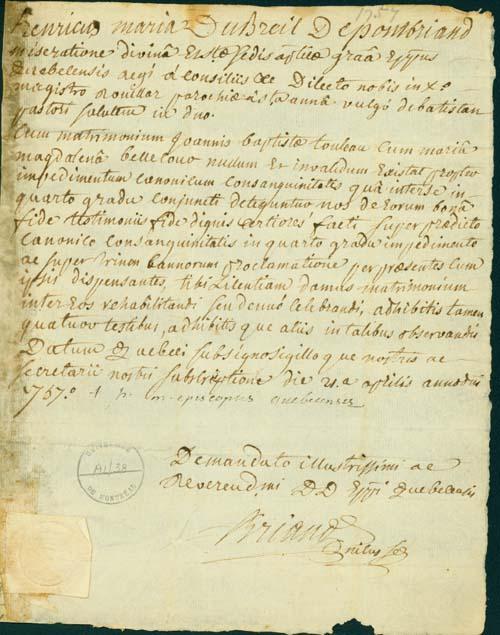 1757
henricus maria Du Breil De pontbriand
miseratione divina Et Stae sedis aplicae graâ Eppus
Quebecensis Regi â consiliis &c Dilecto nobis in Xo
magistro Rouillar parochiae Sta anna vulgô de batiscan
pastori salutem in dno.
Cum matrimonium Joannis baptistae touleau Cum mariâ
magdalenâ bellecour nullum Et invalidum Existat propter
impedimentum canonicum consanguinitatis quâ inter se in
quarto gradu conjuncti deteguntur nos de Eorum bonâ
fide testimoniis fide dignis certiores facti super praedicto
Canonico Consanguinitatis in quarto gradu impedimento
ac super trium bannorum proclamatione per praesentes Cum
ipsis dispensantes, tibi licentiam damus matrimonium
inter Eos rehabilitandi seu denuô Celebrandi, adhibitis tamen
quatuor testibus, adhibitisque aliis in talibus observandis
Datum Quebeci sub signo sigilloque nostris ac
secretarii nostri subscriptione die 21.a aprilis anno dni
757.o + h. m. episcopus quebecensis
De mandato illustrissimi ac
Reverendmi D D Eppi Quebecensis
Briand
A1/38
DE MONTREAL